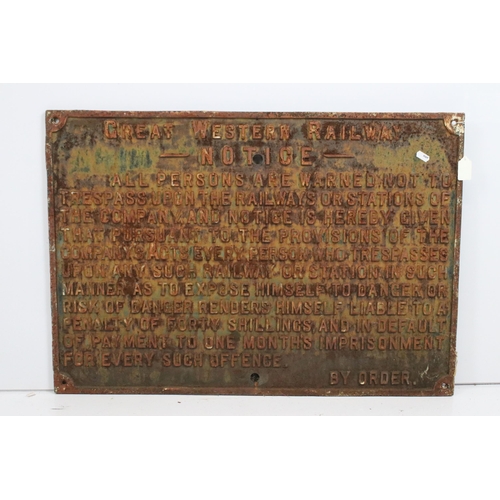 GREAT WESTERN RAILWAY
— NOTICE —
ALL PERSONS ARE WARNED NOT TO
TRESPASS UPON THE RAILWAYS OR STATIONS OF
THE COMPANY, AND NOTICE IS HEREBY GIVEN
THAT PURSUANT TO THE PROVISIONS OF THE
COMPANY'S ACTS EVERY PERSON WHO TRESPASSES
UPON ANY SUCH RAILWAY OR STATION IN SUCH
MANNER AS TO EXPOSE HIMSELF TO DANGER OR
RISK OF DANGER RENDERS HIMSELF LIABLE TO A
PENALTY OF FORTY SHILLINGS, AND IN DEFAULT
OF PAYMENT TO ONE MONTHS IMPRISONMENT
FOR EVERY SUCH OFFENCE.
BY ORDER.